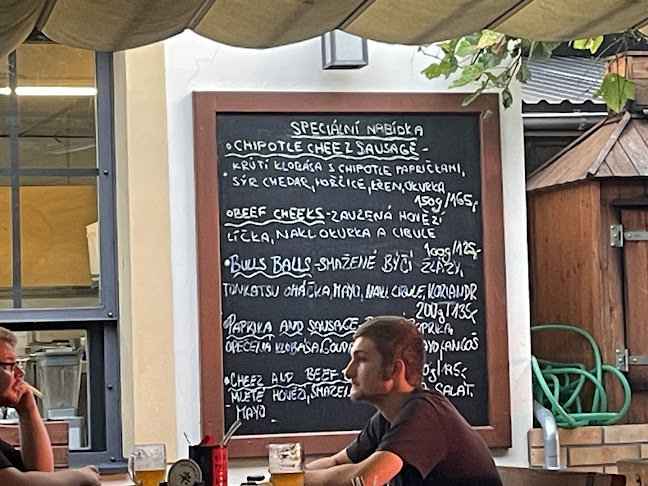 SPECIÁLNÍ NABÍDKA
• CHIPOTLE CHEEZ SAUSAGE -
KRŮTÍ KLOBÁSA S CHIPOTLE PAPRIČKAMI,
SÝR CHEDAR, HOŘČICE, KŘEN, OKURKA
150g/165,-
• BEEF CHEEKS - ZAUZENÁ HOVĚZÍ
LÍČKA, NAKL. OKURKA A CIBULE
100g/125,-
• BULLS BALLS - SMAŽENÉ BÝČÍ ŽLÁZY,
TONKATSU OMÁČKA, MAYO, NAKL. CIBULE, KORIANDR
200g/135,-
• PAPRIKA AND SAUSAGE PAPRIKA,
OPEČENÁ KLOBÁSA, GOUDA MAYO, LANGOŠ
• CHEEZ AND BEEF
MLETÉ HOVĚZÍ, SMAŽEN SALÁT,
- MAYO